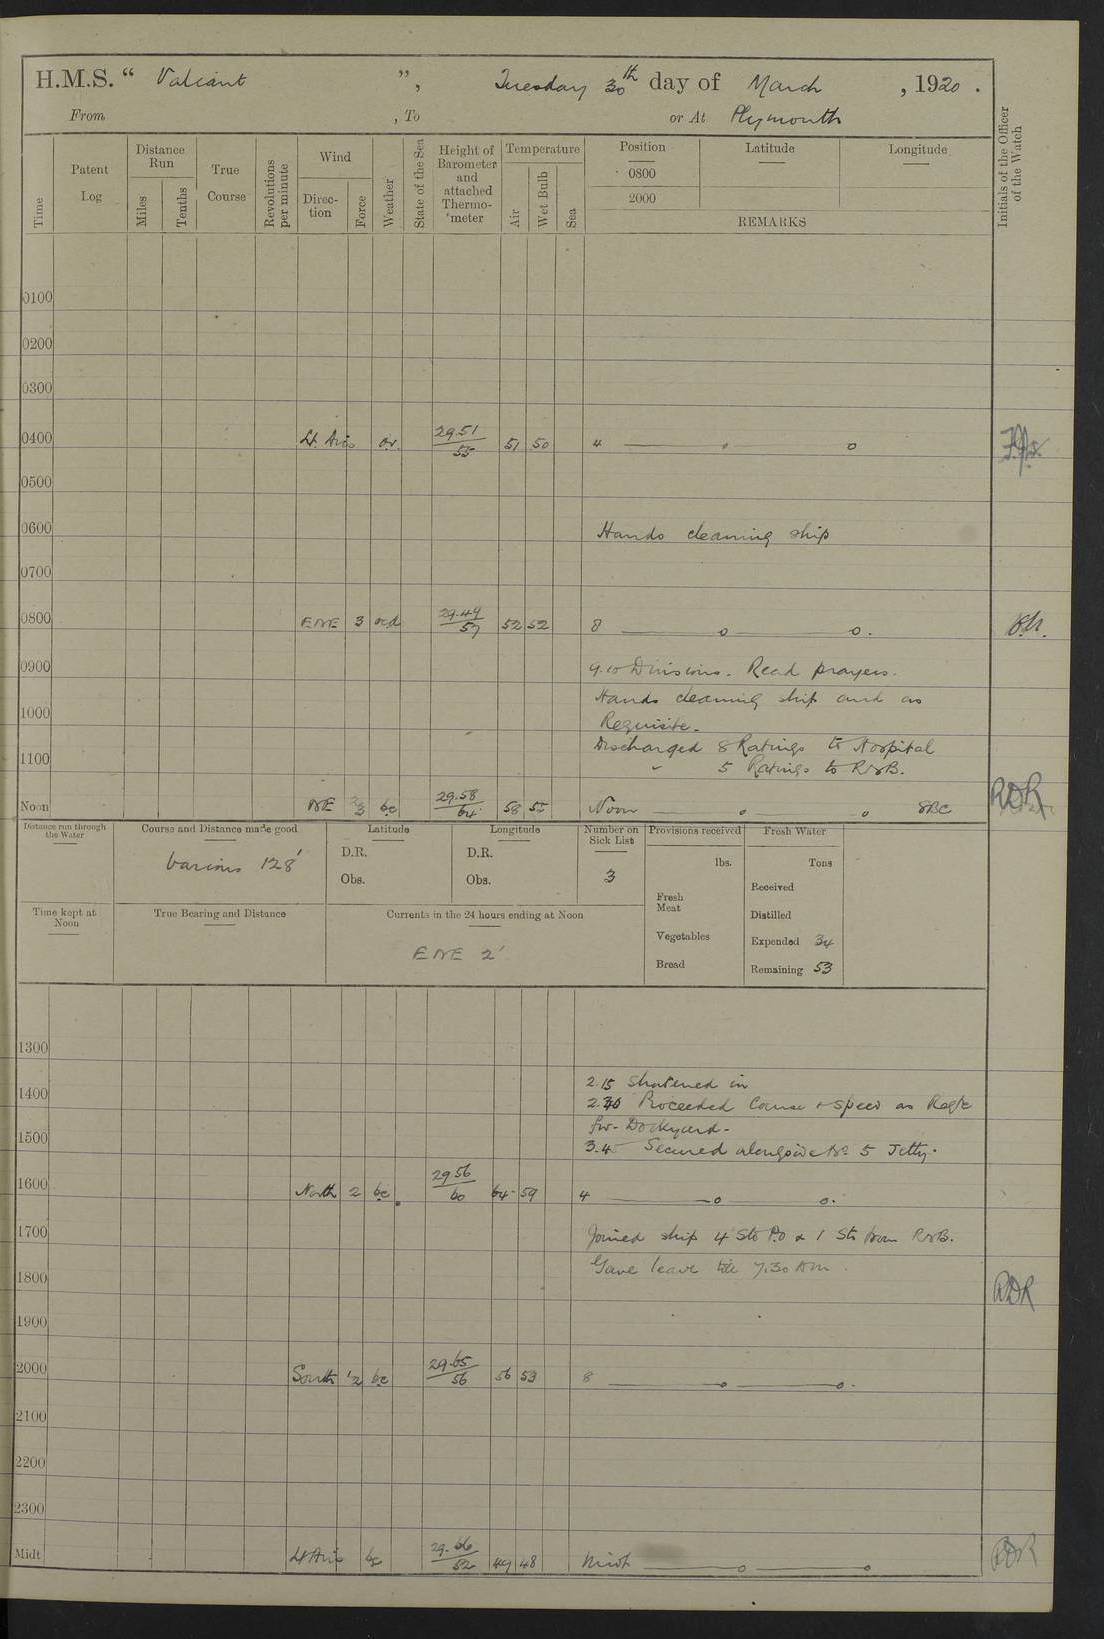 H.M.S. “ Valiant ”, Tuesday 30th day of March , 1920 .
From , To or At Plymouth
Time
Patent Log
Distance Run
Miles
Tenths
True Course
Revolutions per minute
Wind
Direc-tion
Force
Weather
State of the Sea
Height of Barometer and attached Thermo-meter
Temperature
Air
Wet Bulb
Sea
Position
0800
2000
Latitude
Longitude
REMARKS
Initials of the Officer of the Watch
0100
0200
0300
0400 Lt Airs or. 29.51/55 51 50 4
0500
0600 Hands cleaning ship
0700
0800 ENE 3 ocd 29.49/57 52 52 8
0900 9.10 Divisions. Read prayers.
Hands cleaning ship and as
1000 Requisite.
Discharged 8 Ratings to Hospital
1100 " 5 Ratings to RNB.
Noon NE 3 bc 29.58/64 58 55 Noon SBC RDR
Distance run through the Water
Course and Distance made good
various 128'
Latitude
D.R.
Obs.
Longitude
D.R.
Obs.
Number on Sick List
3
Provisions received
lbs.
Fresh Meat
Vegetables
Bread
Fresh Water
Tons
Received
Distilled
Expended 34
Remaining 53
Time kept at Noon
True Bearing and Distance
Currents in the 24 hours ending at Noon
ENE 2'
1300
2.15 Shortened in
1400 2.30 Proceeded Course & Speed as Reqte
for Dockyard.
1500 3.45 Secured alongside No 5 Jetty.
1600 North 2 bc 29.56/60 64 59 4
1700 Joined ship 4 Sto P.O & 1 Sto from RNB.
Gave leave till 7.30 Am.
1800 RDR
1900
2000 South 1/2 bc 29.65/56 56 53 8
2100
2200
2300
Midt Lt Airs bc 29.66/52 49 48 Midt RDR